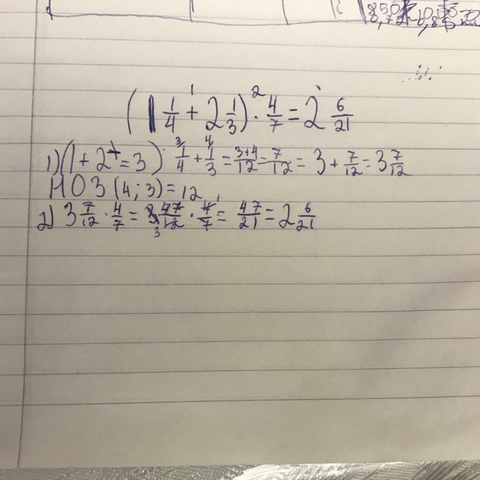 (1 1/4 + 2 1/3) · 4/7 = 2 6/21
1) (1 + 2 = 3) 1/4 + 1/3 = 3+4/12 = 7/12 = 3 + 7/12 = 3 7/12
НОЗ (4; 3) = 12
2) 3 7/12 · 4/7 = 47/12 · 4/7 = 47/21 = 2 6/21